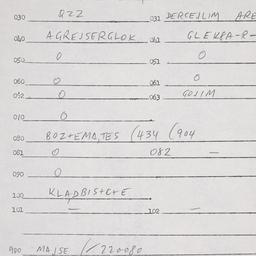 030 QZZ 031 DERCEJLIM ARE
040 AGREJSERGLOK 041 GLEKPA-R-
050 0 051 0
060 0 061 0
062 0 063 GOJIM
070 0
080 BOZ+EMA,TES (434 (904
081 0 082 —
090 0
100 KLADBIS+C+E
101 — 102 —
900 MAJSE (/220080